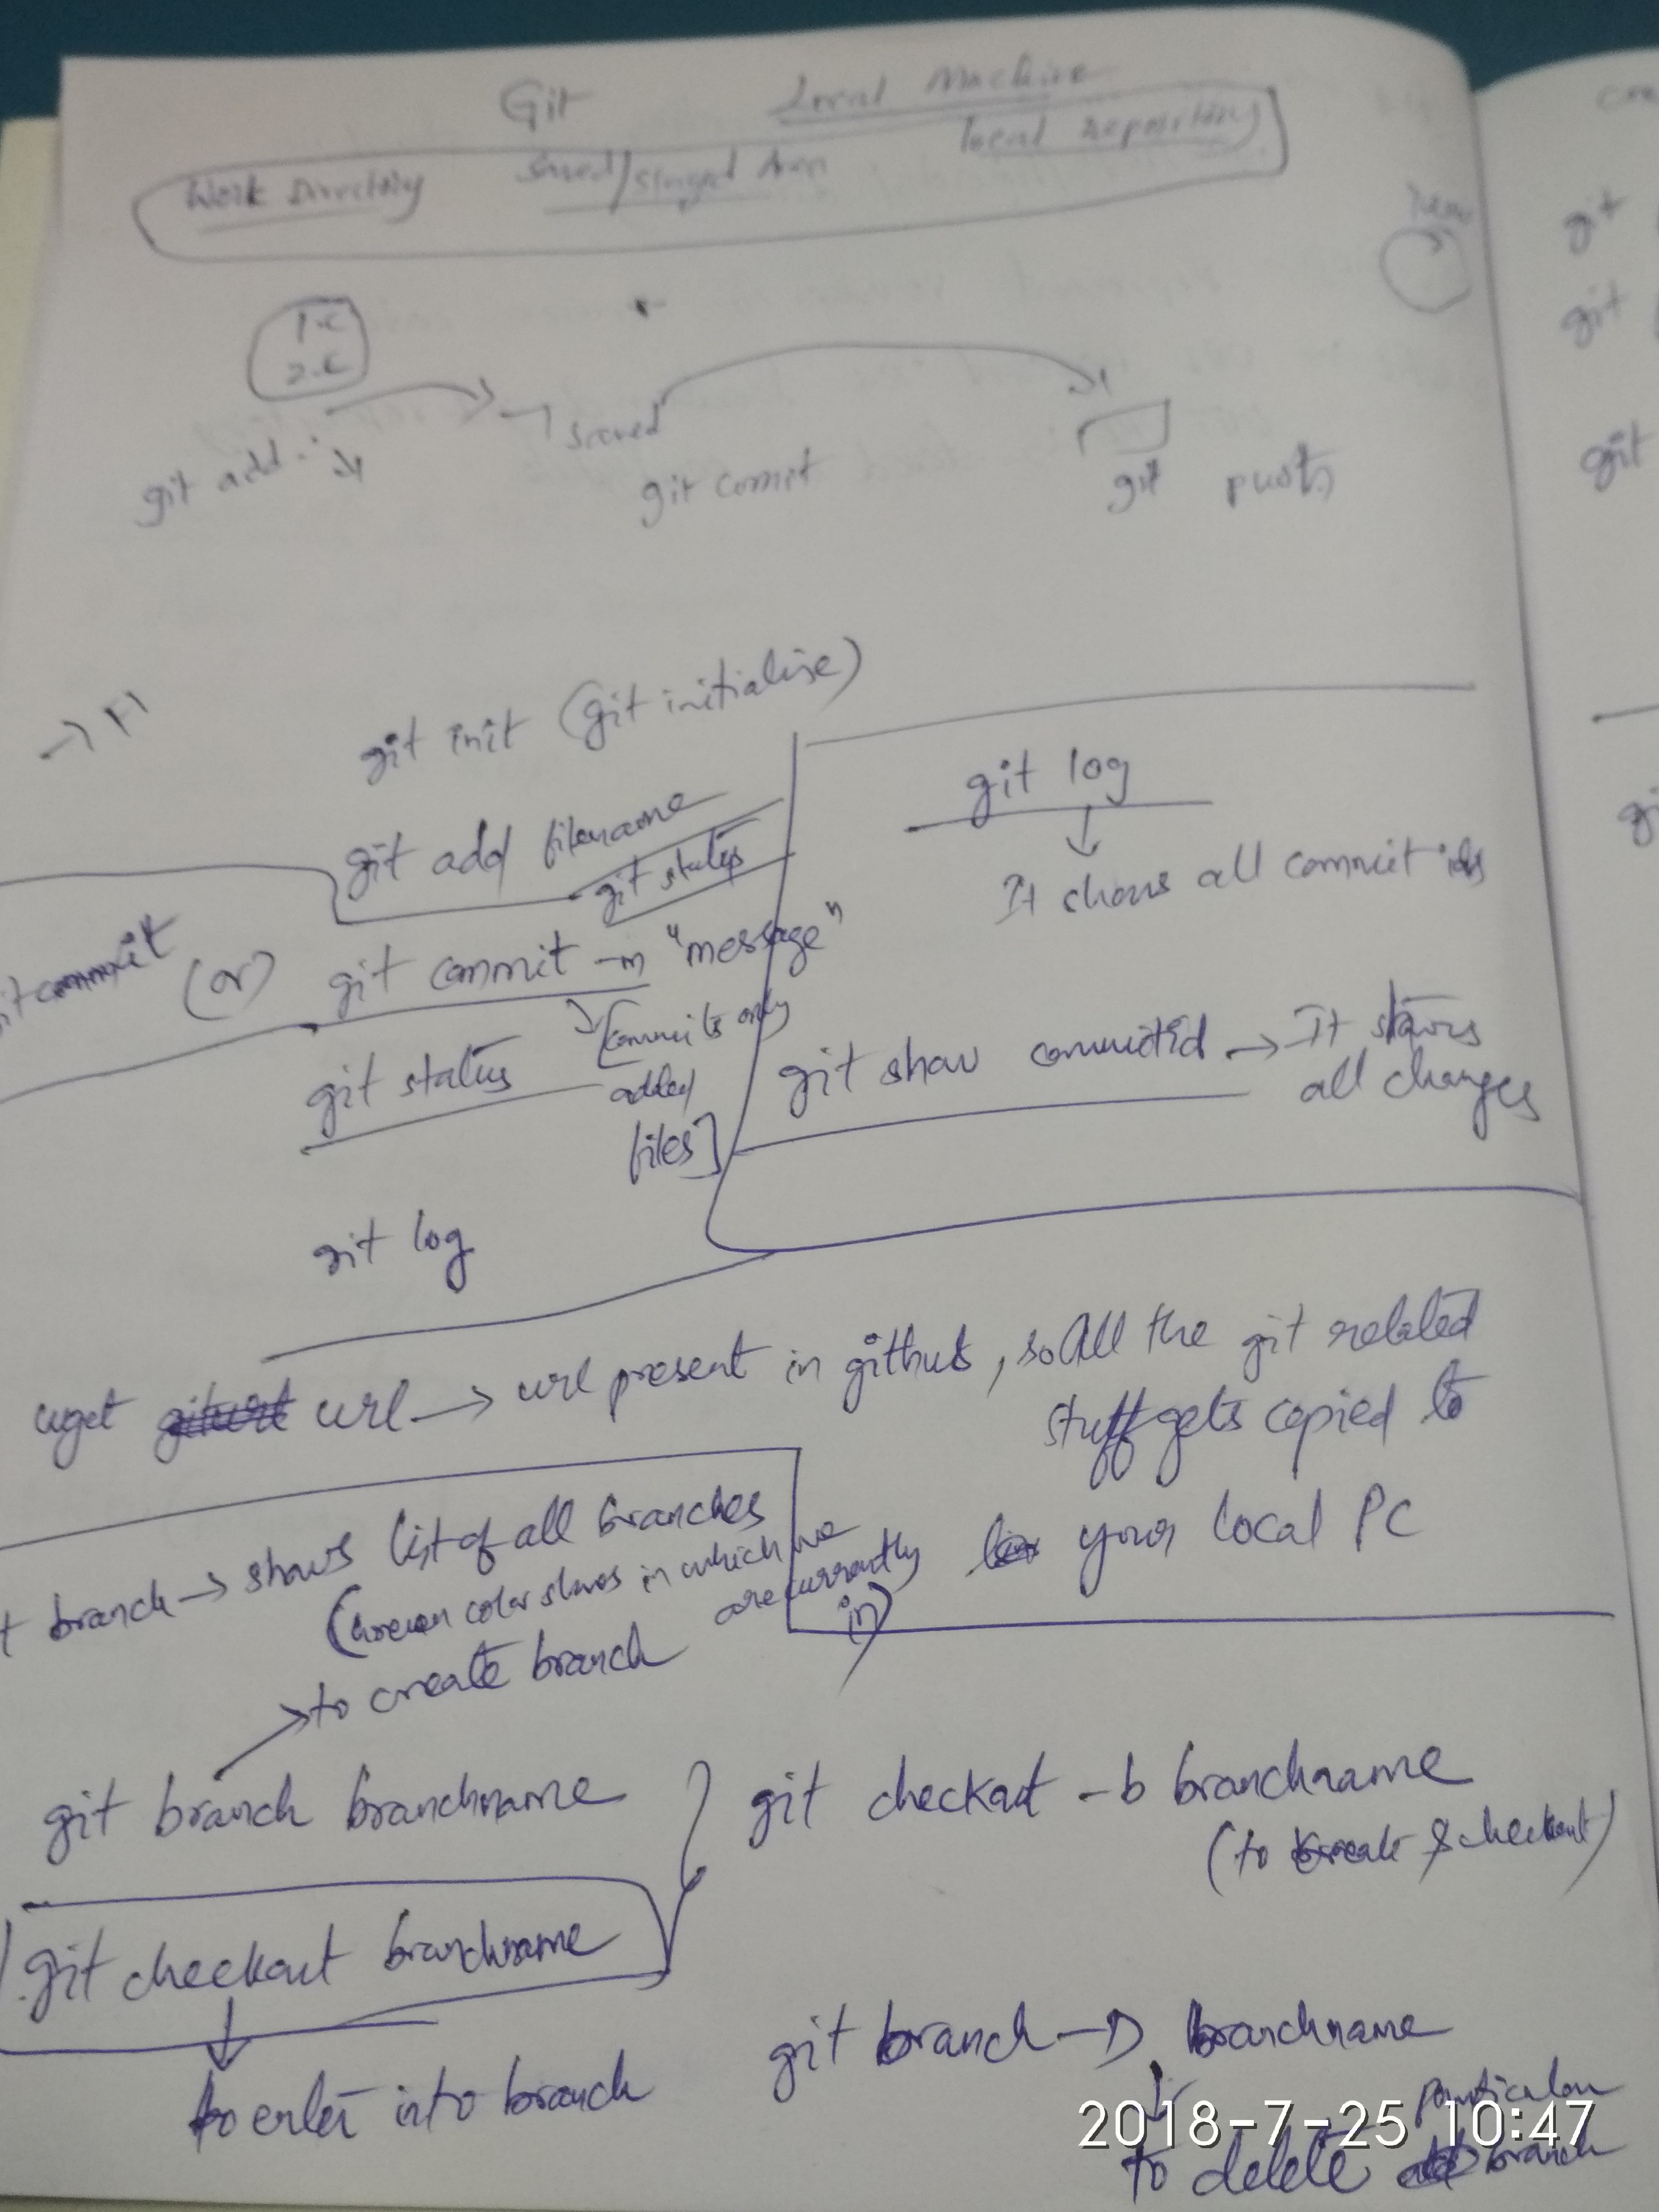 Git
Local Machine
Work Directory
Saved/Staged Area
local repository
1.c
2.c
git add .
→ saved
git comit
git push
git init (git initialise)
git add filename
git status
git commit (or) git commit -m "message"
[commits only
added
files]
git status
git log
git log
It shows all commit ids
git show commitid → It shows
all changes
wget url → url present in github, so All the git related
stuff gets copied to
your local PC
branch → shows list of all branches
(green color shows in which we
are currently
in)
→ to create branch
git branch branchname
git checkout -b branchname
(to create & checkout)
git checkout branchname
to enter into branch
git branch -D branchname
to delete particular
branch
2018-7-25 10:47
git
git
git